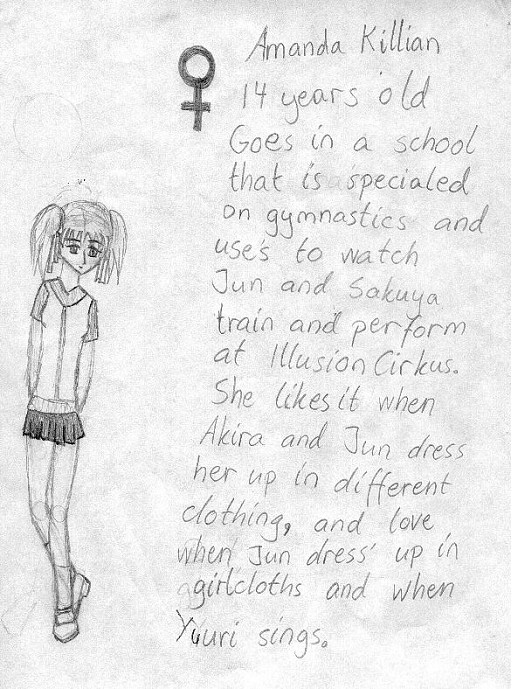 Amanda Killian
14 years old
Goes in a school
that is specialed
on gymnastics and
use's to watch
Jun and Sakuya
train and perform
at Illusion Cirkus.
She likes it when
Akira and Jun dress
her up in different
clothing, and love
when Jun dress' up in
girlcloths and when
Yuuri sings.